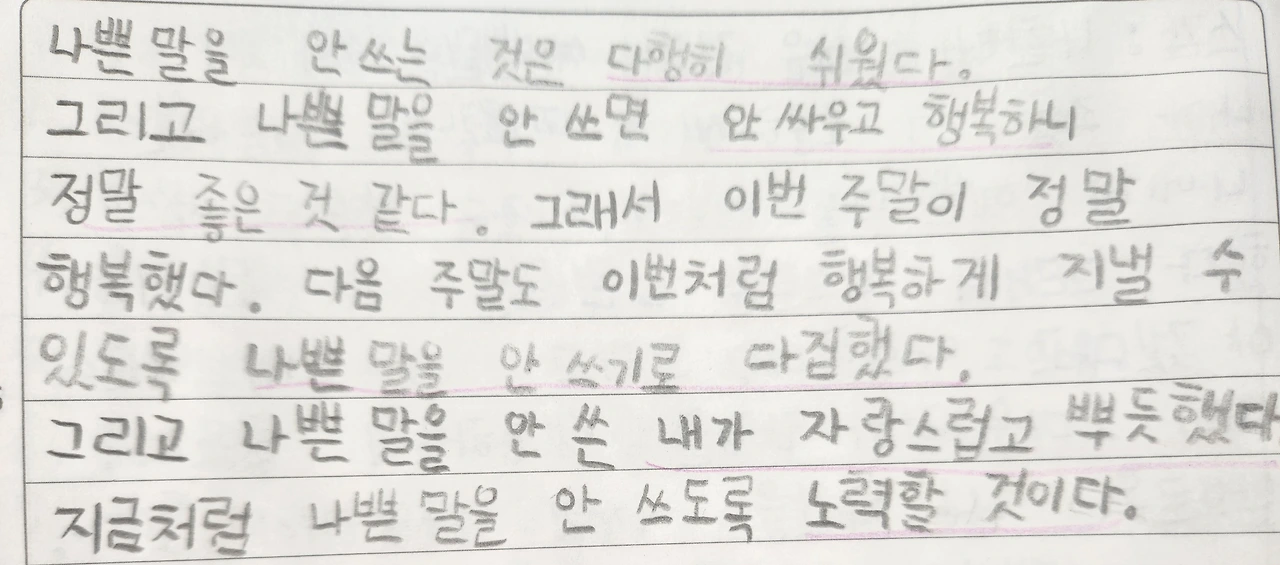 나쁜 말을 안 쓰는 것은 다행히 쉬웠다.
그리고 나쁜 말을 안 쓰면 안 싸우고 행복하니
정말 좋은 것 같다. 그래서 이번 주말이 정말
행복했다. 다음 주말도 이번처럼 행복하게 지낼 수
있도록 나쁜 말을 안 쓰기로 다짐했다.
그리고 나쁜 말을 안 쓴 내가 자랑스럽고 뿌듯했다
지금처럼 나쁜 말을 안 쓰도록 노력할 것이다.